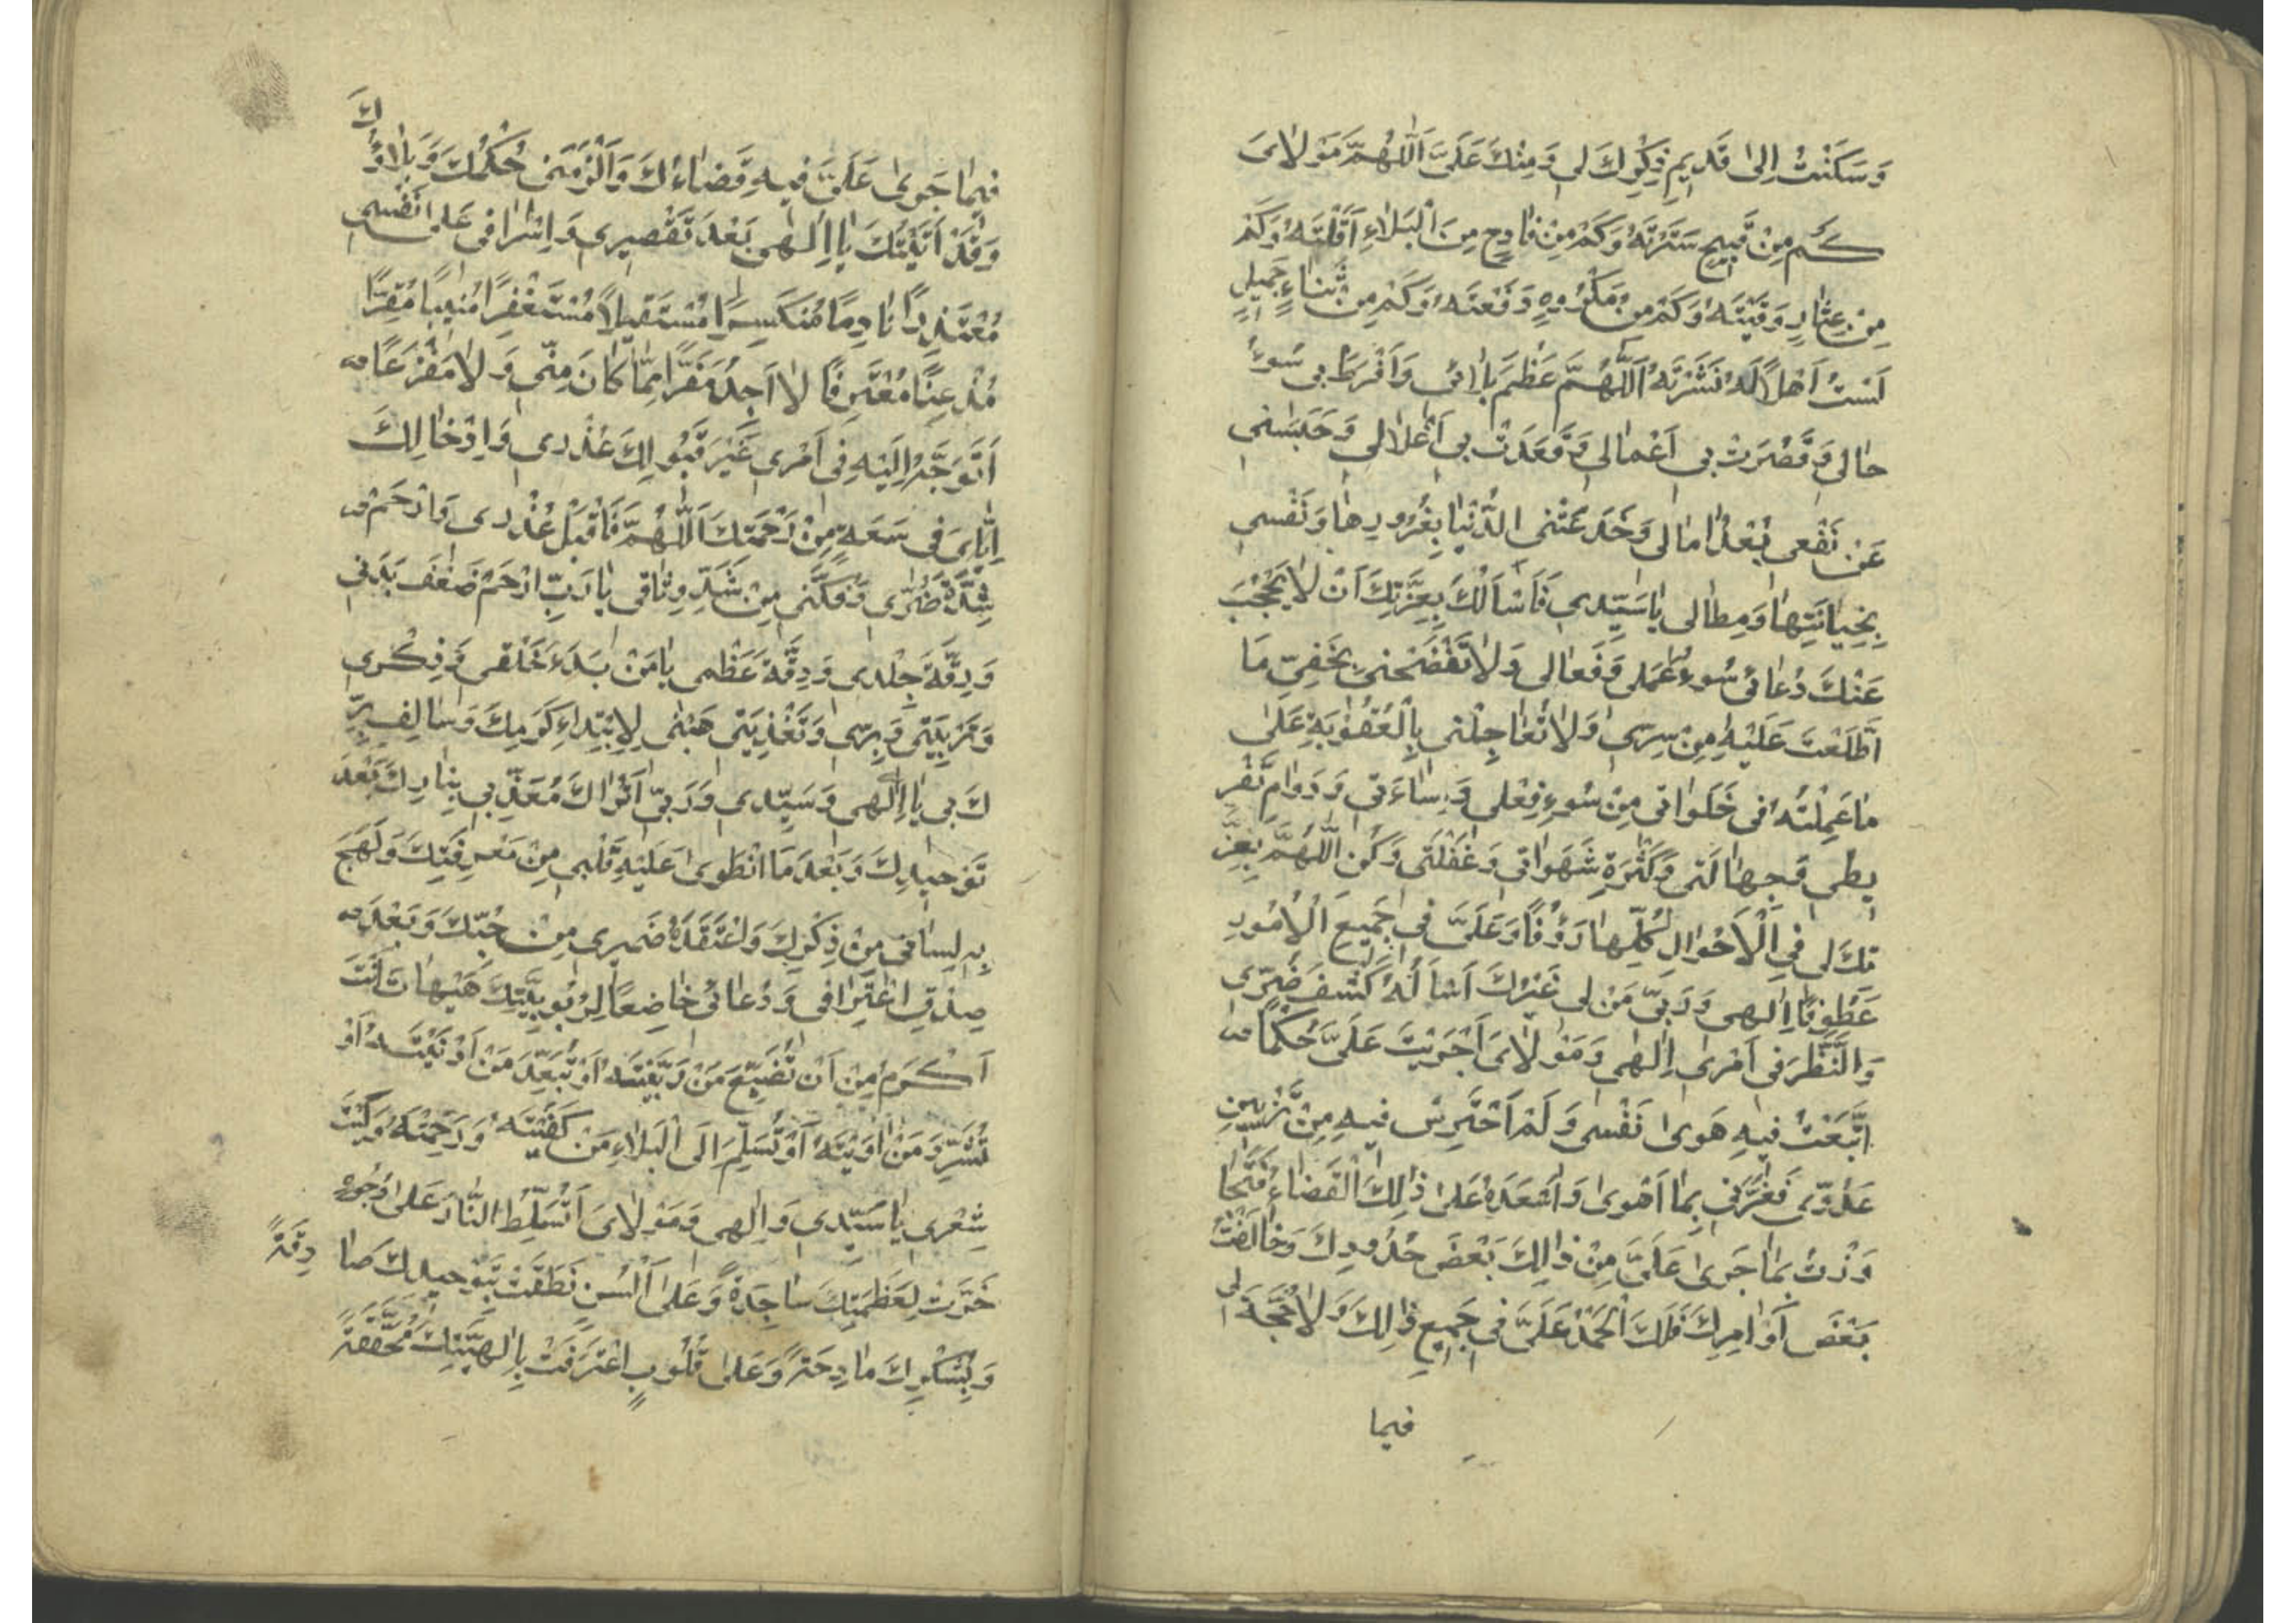 وَسَكَنْتُ اِلىٰ قَديمِ ذِكْرِكَ لى وَمَنِّكَ عَلَىَّ اَللّٰهُمَّ مَوْلاٰىَ
كَمْ مِنْ قَبيحٍ سَتَرْتَهُ وَكَمْ مِنْ فٰادِحٍ مِنَ الْبَلاٰءِ اَقَلْتَهُ وَكَمْ
مِنْ عِثٰارٍ وَقَيْتَهُ وَكَمْ مِنْ مَكْرُوهٍ دَفَعْتَهُ وَكَمْ مِنْ ثَنٰاءٍ جَميلٍ
لَسْتُ اَهْلاً لَهُ نَشَرْتَهُ اَللّٰهُمَّ عَظُمَ بَلاٰئى وَاَفْرَطَ بى سُوءُ
حٰالى وَقَصُرَتْ بى اَعْمٰالى وَقَعَدَتْ بى اَغْلاٰلى وَحَبَسَنى
عَنْ نَفْعى بُعْدُ اٰمٰالى وَخَدَعَتْنِى الدُّنْيٰا بِغُرُورِهٰا وَنَفْسى
بِخِيٰانَتِهٰا وَمِطٰالى يٰا سَيِّدى فَاَسْاَلُكَ بِعِزَّتِكَ اَنْ لاٰ يَحْجُبَ
عَنْكَ دُعٰائى سُوءُ عَمَلى وَفَعٰالى وَلاٰ تَفْضَحْنى بِخَفِىِّ مَا
اطَّلَعْتَ عَلَيْهِ مِنْ سِرّى وَلاٰ تُعٰاجِلْنى بِالْعُقُوبَةِ عَلىٰ
مٰا عَمِلْتُهُ فى خَلَوٰاتى مِنْ سُوءِ فِعْلى وَاِسٰاءَتى وَدَوٰامِ تَفْر
يطى وَجِهٰالَتى وَكَثْرَةِ شَهَوٰاتى وَغَفْلَتى وَكُنِ اللّٰهُمَّ بِعِزَّ
تِكَ لى فِى الْاَحْوٰالِ كُلِّهٰا رَؤُفًا وَعَلَىَّ فى جَميعِ الْاُمُورِ
عَطُوفًا اِلٰهى وَرَبّى مَنْ لى غَيْرُكَ اَسْاَلُهُ كَشْفَ ضُرّى
وَالنَّظَرَ فى اَمْرى اِلٰهى وَمَوْلاٰىَ اَجْرَيْتَ عَلَىَّ حُكْمًا
اتَّبَعْتُ فيهِ هَوىٰ نَفْسى وَلَمْ اَحْتَرِسْ فيهِ مِنْ تَزْيينِ
عَدُوّى فَغَرَّنى بِمٰا اَهْوىٰ وَاَسْعَدَهُ عَلىٰ ذٰلِكَ الْقَضٰاءُ فَتَجٰا
وَزْتُ بِمٰا جَرىٰ عَلَىَّ مِنْ ذٰلِكَ بَعْضَ حُدُودِكَ وَخٰالَفْتُ
بَعْضَ اَوٰامِرِكَ فَلَكَ الْحَمْدُ عَلَىَّ فى جَميعِ ذٰلِكَ وَلاٰ حُجَّةَ لى
فيما
فيمٰا جَرىٰ عَلَىَّ فيهِ قَضٰاءُكَ وَاَلْزَمَنى حُكْمُكَ وَبَلاٰؤُكَ
وَقَدْ اَتَيْتُكَ يٰا اِلٰهى بَعْدَ تَقْصيرى وَاِسْرٰافى عَلىٰ نَفْسى
مُعْتَذِرًا نٰادِمًا مُنْكَسِرًا مُسْتَقيلاً مُسْتَغْفِرًا مُنيبًا مُقِرًّا
مُذْعِنًا مُعْتَرِفًا لاٰ اَجِدُ مَفَرًّا مِمّٰا كٰانَ مِنّى وَلاٰ مَفْزَعًا
اَتَوَجَّهُ اِلَيْهِ فى اَمْرى غَيْرَ قَبُولِكَ عُذْرى وَاِدْخٰالِكَ
اِيّٰاىَ فى سَعَةٍ مِنْ رَحْمَتِكَ اَللّٰهُمَّ فَاقْبَلْ عُذْرى وَارْحَمْ
شِدَّةَ ضُرّى وَفُكَّنى مِنْ شَدِّ وِثٰاقى يٰا رَبِّ ارْحَمْ ضَعْفَ بَدَنى
وَرِقَّةَ جِلْدى وَدِقَّةَ عَظْمى يٰا مَنْ بَدَءَ خَلْقى وَذِكْرى
وَتَرْبِيَتى وَبِرّى وَتَغْذِيَتى هَبْنى لِابْتِدٰاءِ كَرَمِكَ وَسٰالِفِ بِرِّ
كَ بى يٰا اِلٰهى وَسَيِّدى وَرَبّى اَتُرٰاكَ مُعَذِّبى بِنٰارِكَ بَعْدَ
تَوْحيدِكَ وَبَعْدَ مَا انْطَوىٰ عَلَيْهِ قَلْبى مِنْ مَعْرِفَتِكَ وَلَهِجَ
بِهِ لِسٰانى مِنْ ذِكْرِكَ وَاعْتَقَدَهُ ضَميرى مِنْ حُبِّكَ وَبَعْدَ
صِدْقِ اعْتِرٰافى وَدُعٰائى خٰاضِعًا لِرُبُوبِيَّتِكَ هَيْهٰاتَ اَنْتَ
اَكْرَمُ مِنْ اَنْ تُضَيِّعَ مَنْ رَبَّيْتَهُ اَوْ تُبَعِّدَ مَنْ اَدْنَيْتَهُ اَوْ
تُشَرِّدَ مَنْ اٰوَيْتَهُ اَوْ تُسَلِّمَ اِلَى الْبَلاٰءِ مَنْ كَفَيْتَهُ وَرَحِمْتَهُ وَلَيْتَ
شِعْرى يٰا سَيِّدى وَاِلٰهى وَمَوْلاٰىَ اَتُسَلِّطُ النّٰارَ عَلىٰ وُجُوهٍ
خَرَّتْ لِعَظَمَتِكَ سٰاجِدَةً وَعَلىٰ اَلْسُنٍ نَطَقَتْ بِتَوْحيدِكَ صٰا دِقَةً
وَبِشُكْرِكَ مٰادِحَةً وَعَلىٰ قُلُوبٍ اعْتَرَفَتْ بِاِلٰهِيَّتِكَ مُحَقِّقَةً